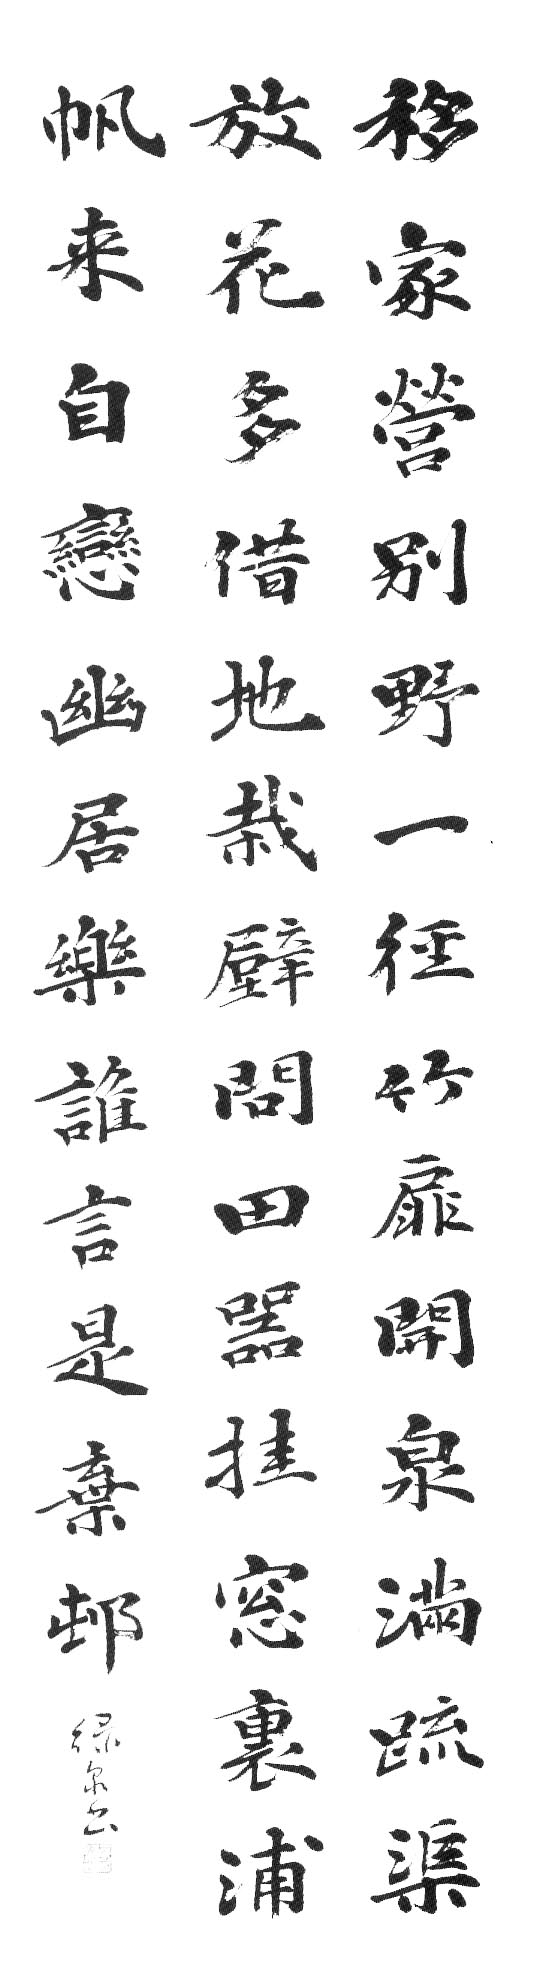 移家營別野一徑竹扉開泉滿疏渠
放花多借地栽壁間田器挂窓裏浦
帆来自戀幽居樂誰言是棄邨
緑泉書